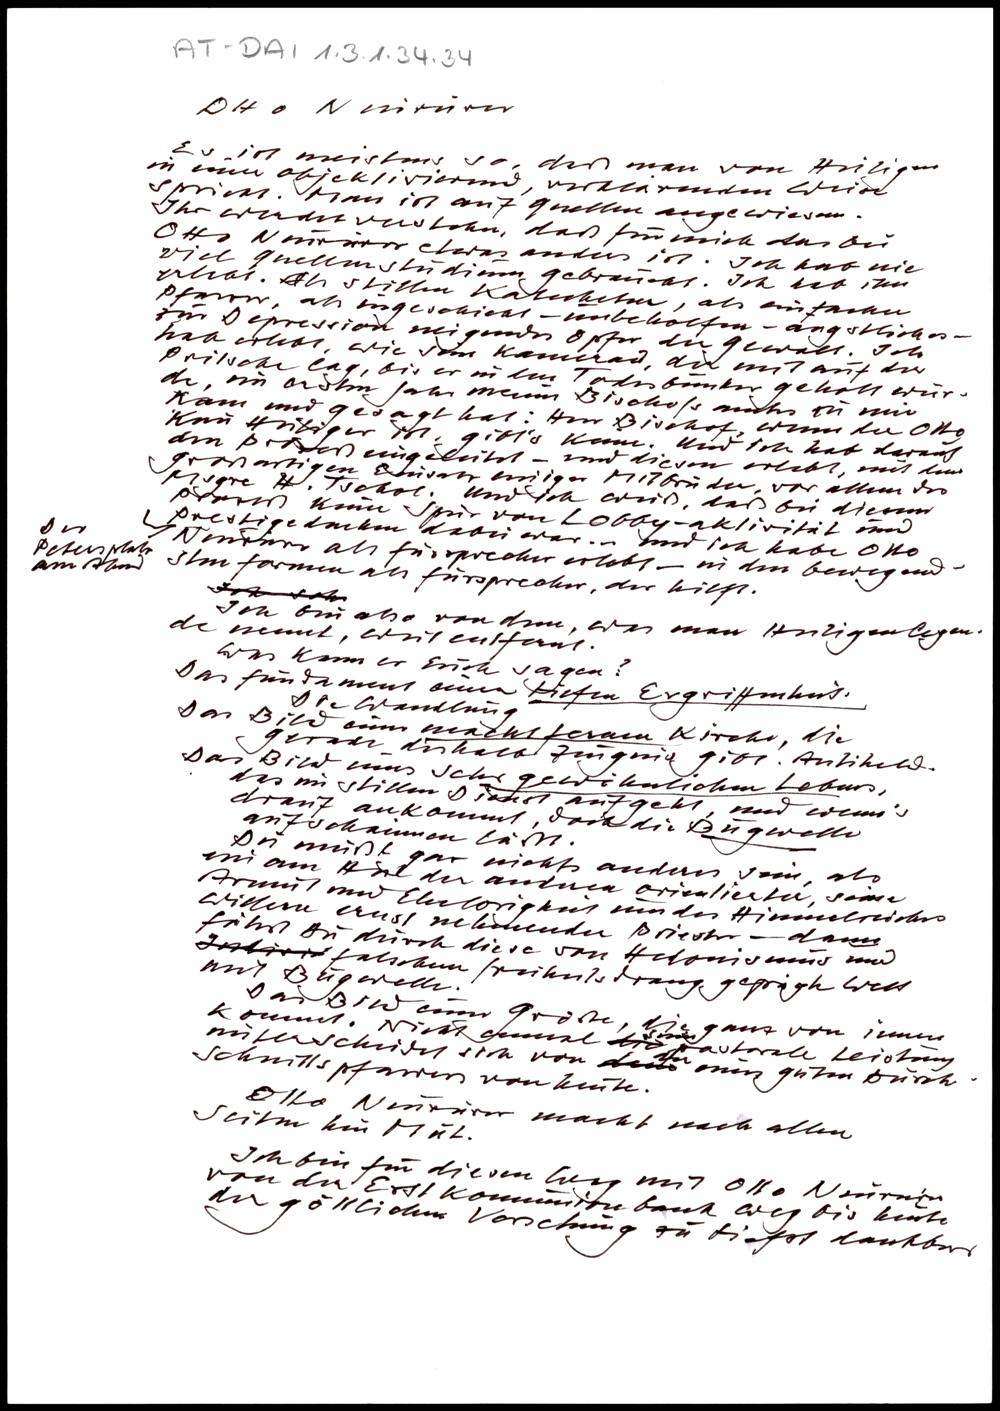 AT-DAI 1.3.1.34.34
Otto Neururer
Es ist meistens so, daß man von Heiligen
in einer objektivierend, verklärenden Weise
spricht. Man ist auf Quellen angewiesen.
Ihr werdet verstehn, daß für mich das bei
Otto Neururer etwas anders ist. Ich hab nie
viel Quellenstudium gebraucht. Ich hab ihn
erlebt. Als stillen Katecheten, als einfachen
Pfarrer, als ungeschickt-unbeholfen-ängstliches-
zur Depression neigendes Opfer der Gewalt. Ich
hab erlebt, wie sein Kamerad, der mit auf der
Pritsche lag, bis er in den Todesbunker geholt wur-
de, im ersten Jahr meines Bischofsamtes zu mir
kam und gesagt hat: Herr Bischof, wenn der Otto
kein Heiliger ist, gibt's keine. Und ich hab darauf
den Prozeß eingeleitet - und diesen erlebt, mit dem
großartigen Einsatz einiger Mitbrüder, vor allem des
Msgre H. Tschol. Und ich weiß, daß bei diesem
Prozeß keine Spur von Lobby-aktivität und
Prestigedenken dabei war... und ich habe Otto
Der
Petersplatz
am Abend
Neururer als Fürsprecher erlebt - in den bewegend-
sten Formen als Fürsprecher, der hilft.
Ich
Ich bin also von dem, was man Heiligenlegen-
de nennt, weit entfernt.
Was kann er Euch sagen?
Das Fundament einer tiefen Ergriffenheit.
Die Wandlung
Das Bild einer machtfernen Kirche, die
gerade deshalb Zeugnis gibt. Antiheld.
Das Bild eines sehr gewöhnlichen Lebens,
das im stillen Dienst aufgeht, und wenn's
drauf ankommt, doch die Bugwelle
aufschäumen läßt.
Du mußt gar nichts anderes sein, als
ein am Heil der anderen orientierter, seine
Armut und Ehelosigkeit um des Himmelreiches
willen ernst nehmender Priester - dann
fährst Du durch diese von Hedonismus und
falschem Freiheitsdrang geprägte Welt
mit Bugwelle.
Das Bild einer Größe, die ganz von innen
kommt. Nicht einmal seine pastorale Leistung
unterscheidet sich von der eines guten Durch-
schnittspfarrers von heute.
Otto Neururer macht nach allen
Seiten hin Mut.
Ich bin für diesen Weg mit Otto Neururer
von der Erstkommunionbank weg bis heute
der göttlichen Vorsehung zu tiefst dankbar